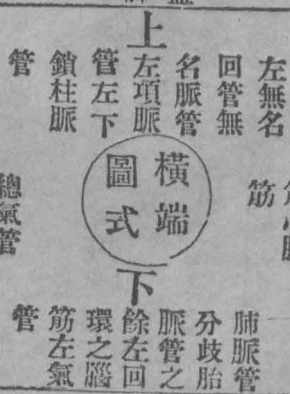 上
左無名
回管無
名脈管
左項脈
管左下
鎖柱脈
管
筋
橫端
圖式
總氣管
下
肺脈管
分歧胎
脈管之
餘左回
環之腦
筋左氣
管